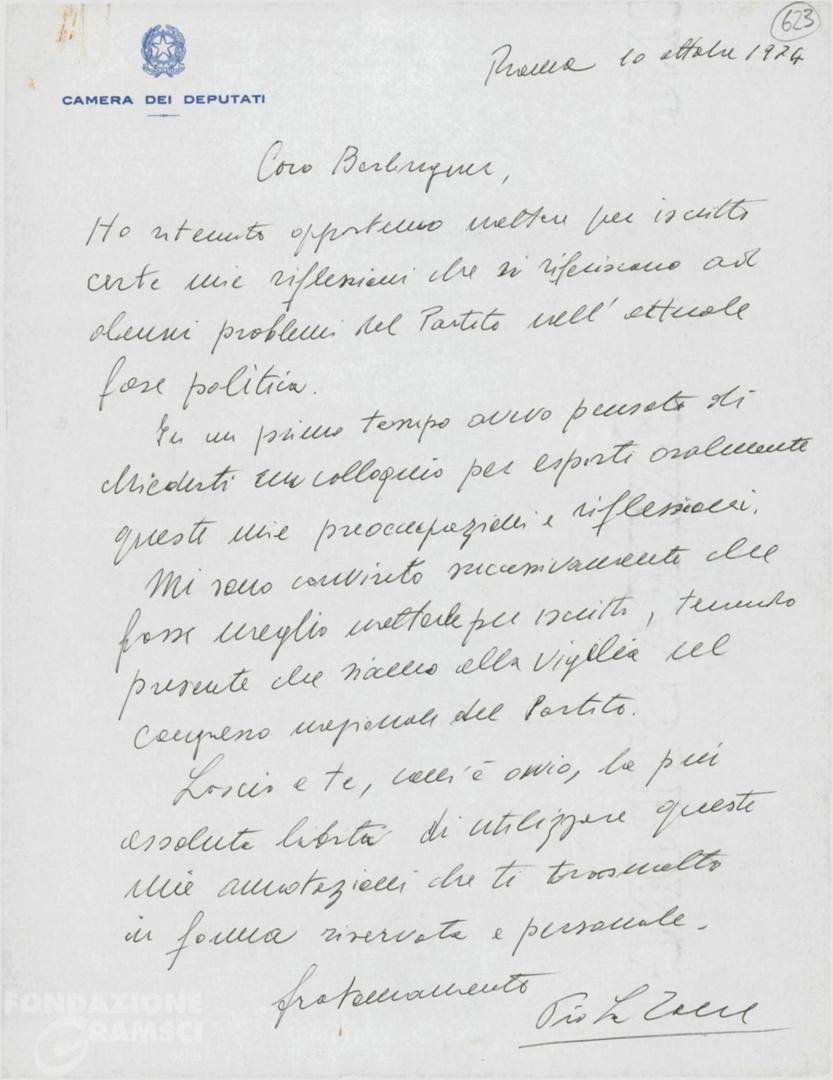 623
Roma 10 ottobre 1974
CAMERA DEI DEPUTATI
Caro Berlinguer,
Ho ritenuto opportuno mettere per iscritto
certe mie riflessioni che si riferiscono ad
alcuni problemi del Partito nell'attuale
fase politica.
In un primo tempo avevo pensato di
chiederti un colloquio per esporti oralmente
queste mie preoccupazioni e riflessioni.
Mi sono convinto successivamente che
fosse meglio metterle per iscritto, tenendo
presente che siamo alla vigilia del
Congresso nazionale del Partito.
Lascio a te, com'è ovvio, la più
assoluta libertà di utilizzare queste
mie annotazioni che ti trasmetto
in forma riservata e personale.
fraternamente
Pio La Torre
FONDAZIONE
GRAMSCI
onlus